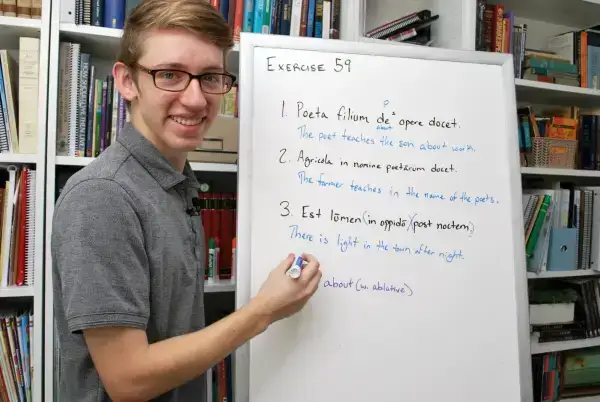 EXERCISE 59
P
1. Poeta fīlium dē opere docet.
about
The poet teaches the son about work.
2. Agricola in nōmine poētārum docet.
The farmer teaches in the name of the poets.
3. Est lūmen (in oppidō) (post noctem.)
There is light in the town after night.
about (w. ablative)